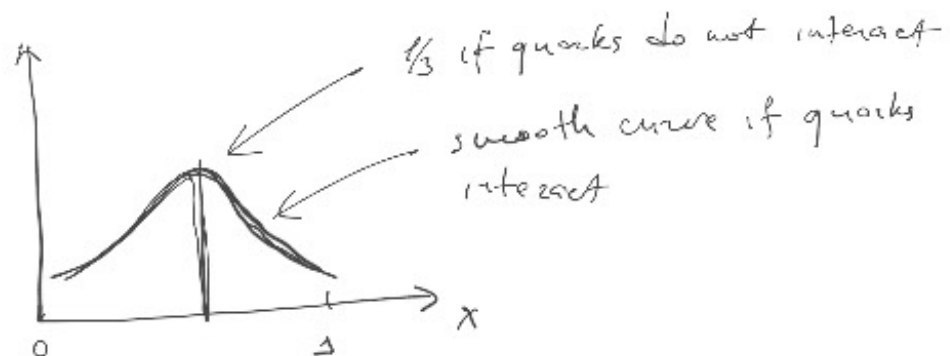 1/3 if quarks do not interact
smooth curve if quarks
interact
x
0
1